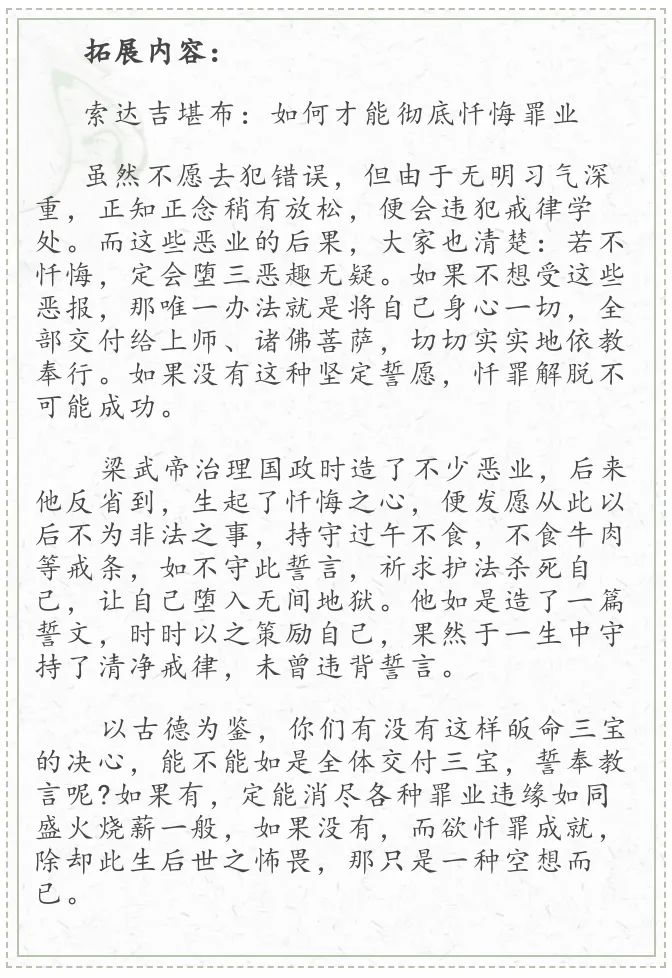 拓展内容：
索达吉堪布：如何才能彻底忏悔罪业
虽然不愿去犯错误，但由于无明习气深
重，正知正念稍有放松，便会违犯戒律学
处。而这些恶业的后果，大家也清楚：若不
忏悔，定会堕三恶趣无疑。如果不想受这些
恶报，那唯一办法就是将自己身心一切，全
部交付给上师、诸佛菩萨，切切实实地依教
奉行。如果没有这种坚定誓愿，忏罪解脱不
可能成功。
梁武帝治理国政时造了不少恶业，后来
他反省到，生起了忏悔之心，便发愿从此以
后不为非法之事，持守过午不食，不食牛肉
等戒条，如不守此誓言，祈求护法杀死自
己，让自己堕入无间地狱。他如是造了一篇
誓文，时时以之策励自己，果然于一生中守
持了清净戒律，未曾违背誓言。
以古德为鉴，你们有没有这样皈命三宝
的决心，能不能如是全体交付三宝，誓奉教
言呢?如果有，定能消尽各种罪业违缘如同
盛火烧薪一般，如果没有，而欲忏罪成就，
除却此生后世之怖畏，那只是一种空想而
已。